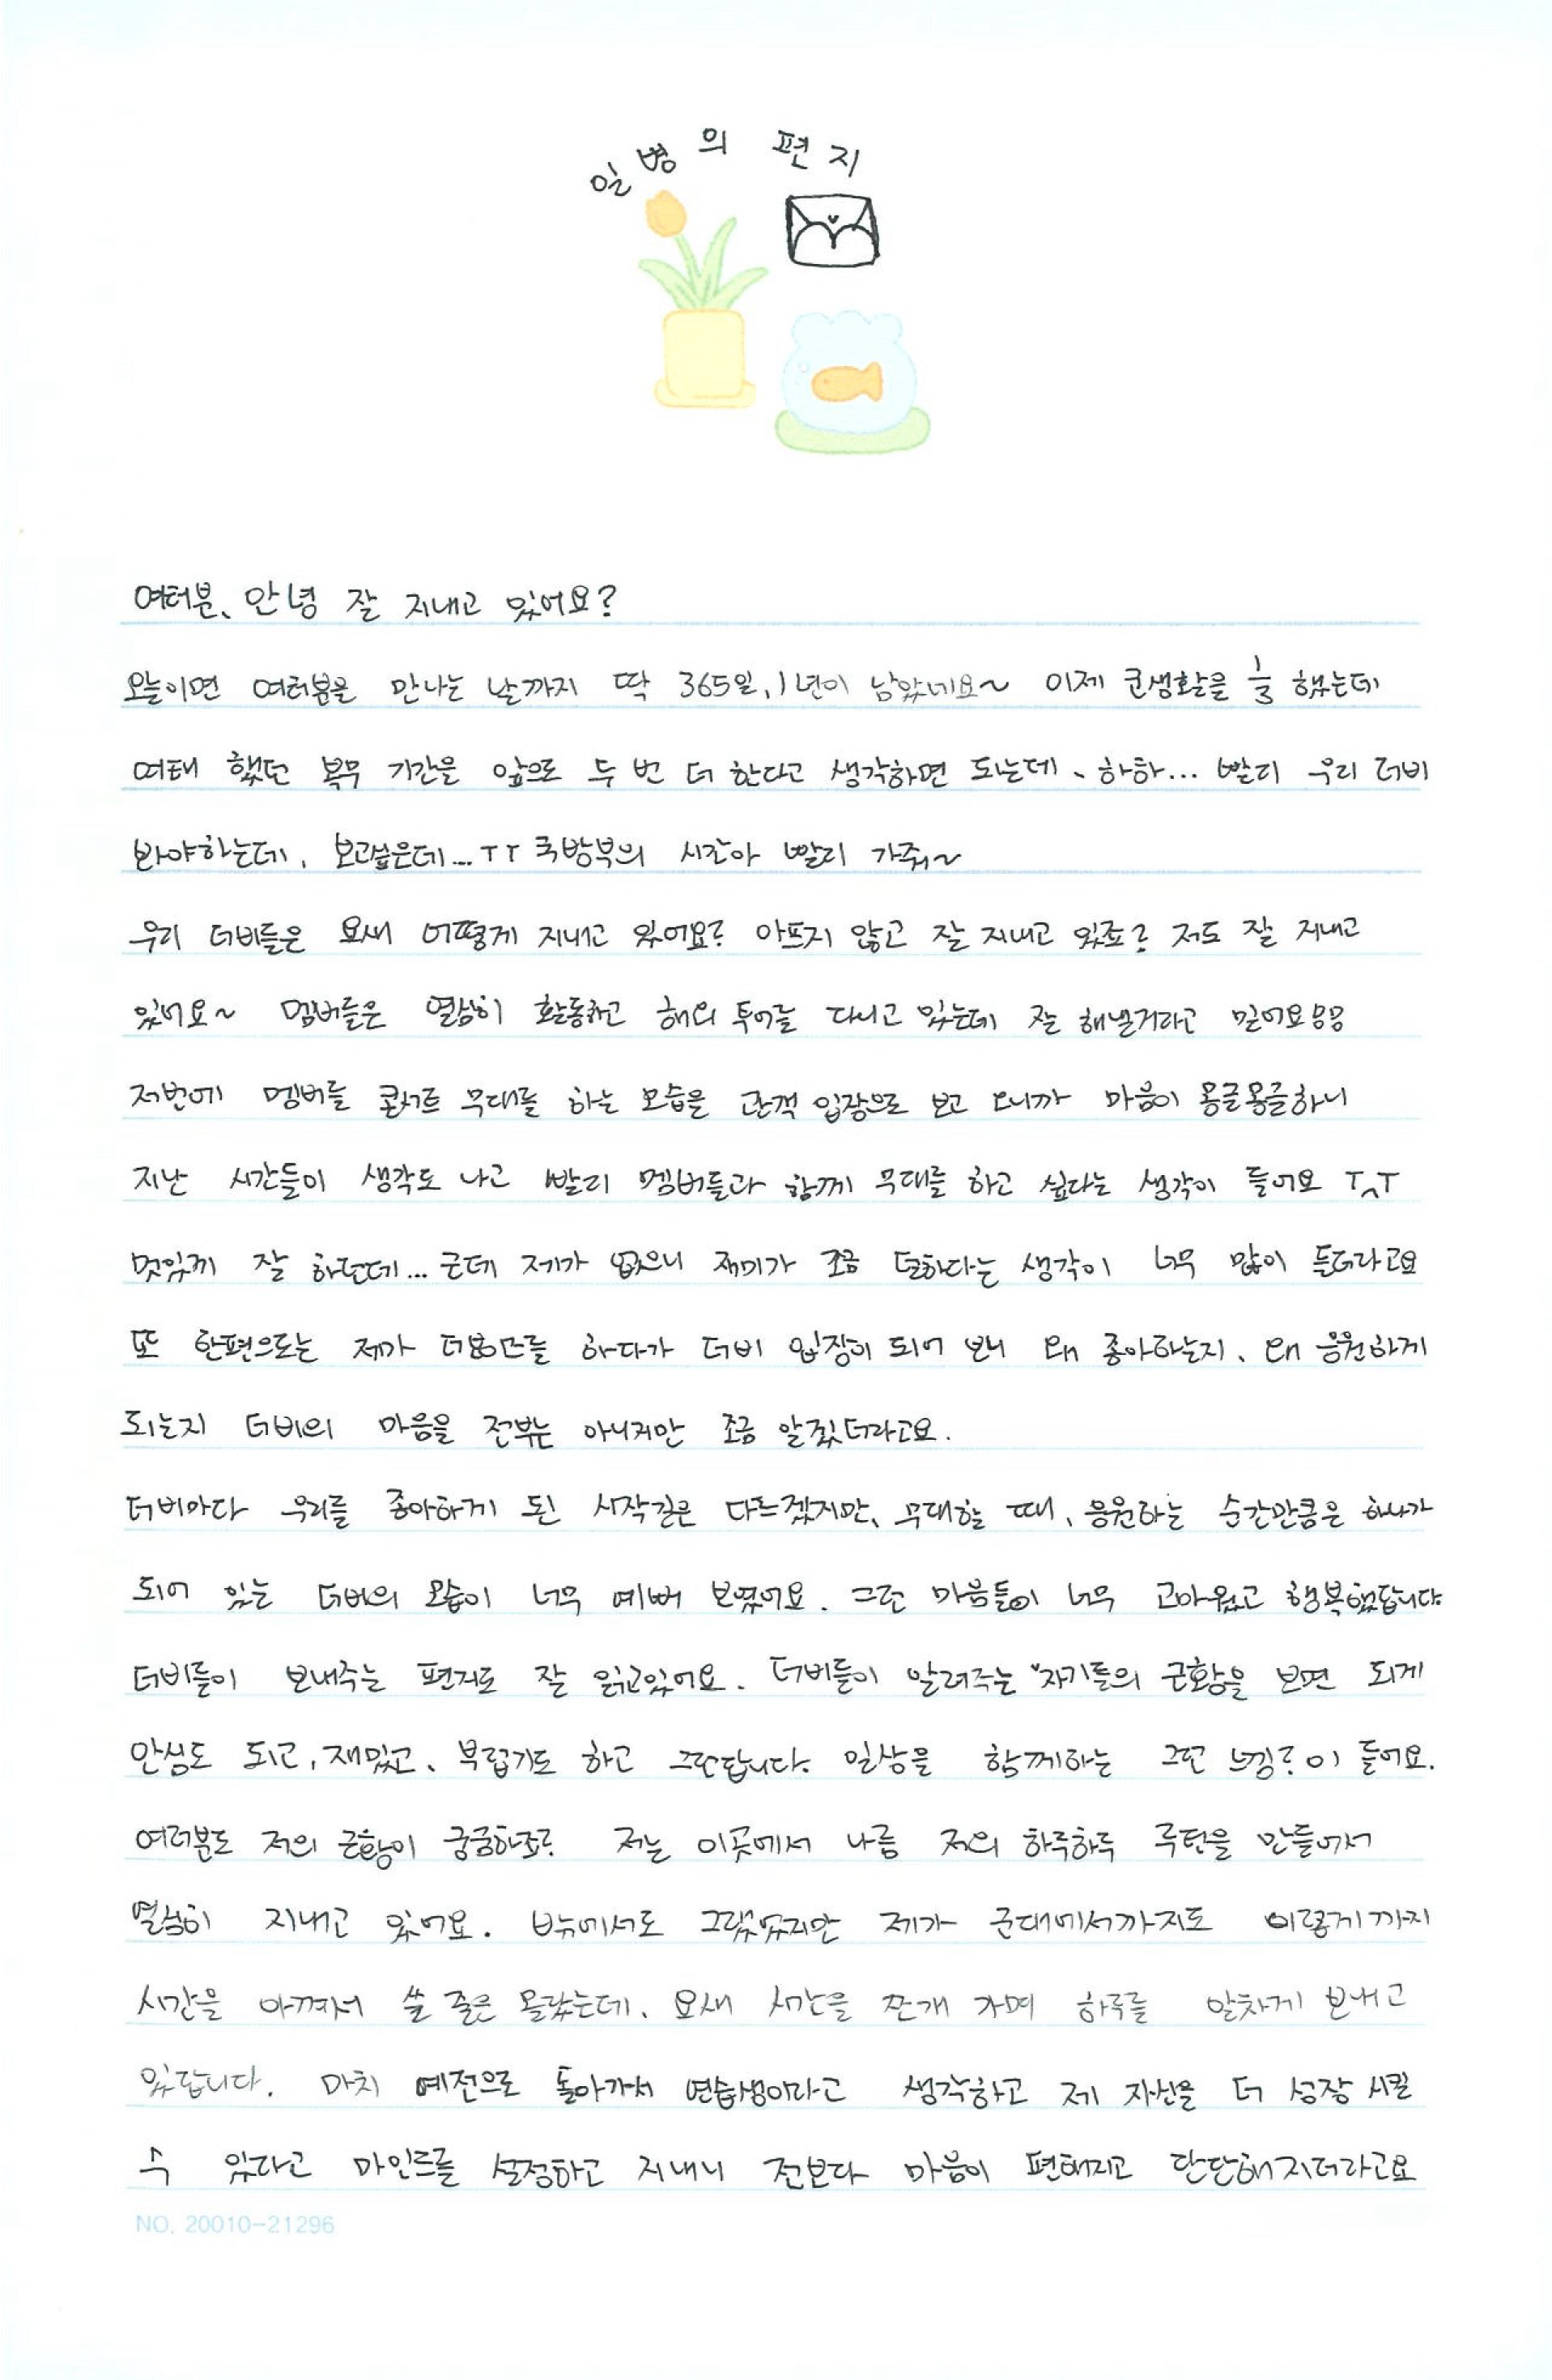 일병의 편지
여러분, 안녕 잘 지내고 있어요?
오늘이면 여러분을 만나는 날까지 딱 365일, 1년이 남았네요~ 이제 군생활을 1/3 했는데
여태 했던 복무 기간을 앞으로 두 번 더 한다고 생각하면 되는데, 하하... 빨리 우리 더비
봐야하는데, 보고싶은데... ㅜㅜ 국방부의 시간아 빨리 가줘~
우리 더비들은 요새 어떻게 지내고 있어요? 아프지 않고 잘 지내고 있죠? 저도 잘 지내고
있어요~ 멤버들은 열심히 활동하고 해외 투어를 다니고 있는데 잘 해낼거라고 믿어요
저번에 멤버들 콘서트 무대를 하는 모습을 관객 입장으로 보고 오니까 마음이 몽글몽글하니
지난 시간들이 생각도 나고 빨리 멤버들과 함께 무대를 하고 싶다는 생각이 들어요 T^T
멋있게 잘 하던데... 근데 제가 없으니 재미가 조금 덜하다는 생각이 너무 많이 들더라고요
또 한편으로는 제가 더보이즈를 하다가 더비 입장이 되어 보니 왜 좋아하는지, 왜 응원하게
되는지 더비의 마음을 전부는 아니지만 조금 알겠더라고요.
더비마다 우리를 좋아하게 된 시작점은 다르겠지만, 무대할 때, 응원하는 순간만큼은 하나가
되어 있는 더비의 모습이 너무 예뻐 보였어요. 그런 마음들이 너무 고마웠고 행복했답니다.
더비들이 보내주는 편지도 잘 읽고있어요. 더비들이 알려주는 자기들의 근황을 보면 되게
안심도 되고, 재밌고, 부럽기도 하고 그런답니다. 일상을 함께하는 그런 느낌? 이 들어요.
여러분도 저의 근황이 궁금하죠? 저는 이곳에서 나름 저의 하루하루 루틴을 만들어서
열심히 지내고 있어요. 밖에서도 그랬었지만 제가 군대에서까지도 이렇게까지
시간을 아껴서 쓸 줄은 몰랐는데, 요새 시간을 쪼개 가며 하루를 알차게 보내고
있답니다. 마치 예전으로 돌아가서 연습생이라고 생각하고 제 자신을 더 성장 시킬
수 있다고 마인드를 설정하고 지내니 전보다 마음이 편해지고 단단해지더라고요
NO. 20010-21296